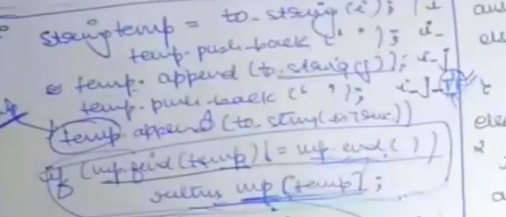 string temp = to_string(i);
temp.push_back(' '); i_
temp.append(to_string(j)); i_j
temp.push_back(' '); i_j_
temp.append(to_string(isTrue))
if (mp.find(temp) != mp.end())
return mp[temp];